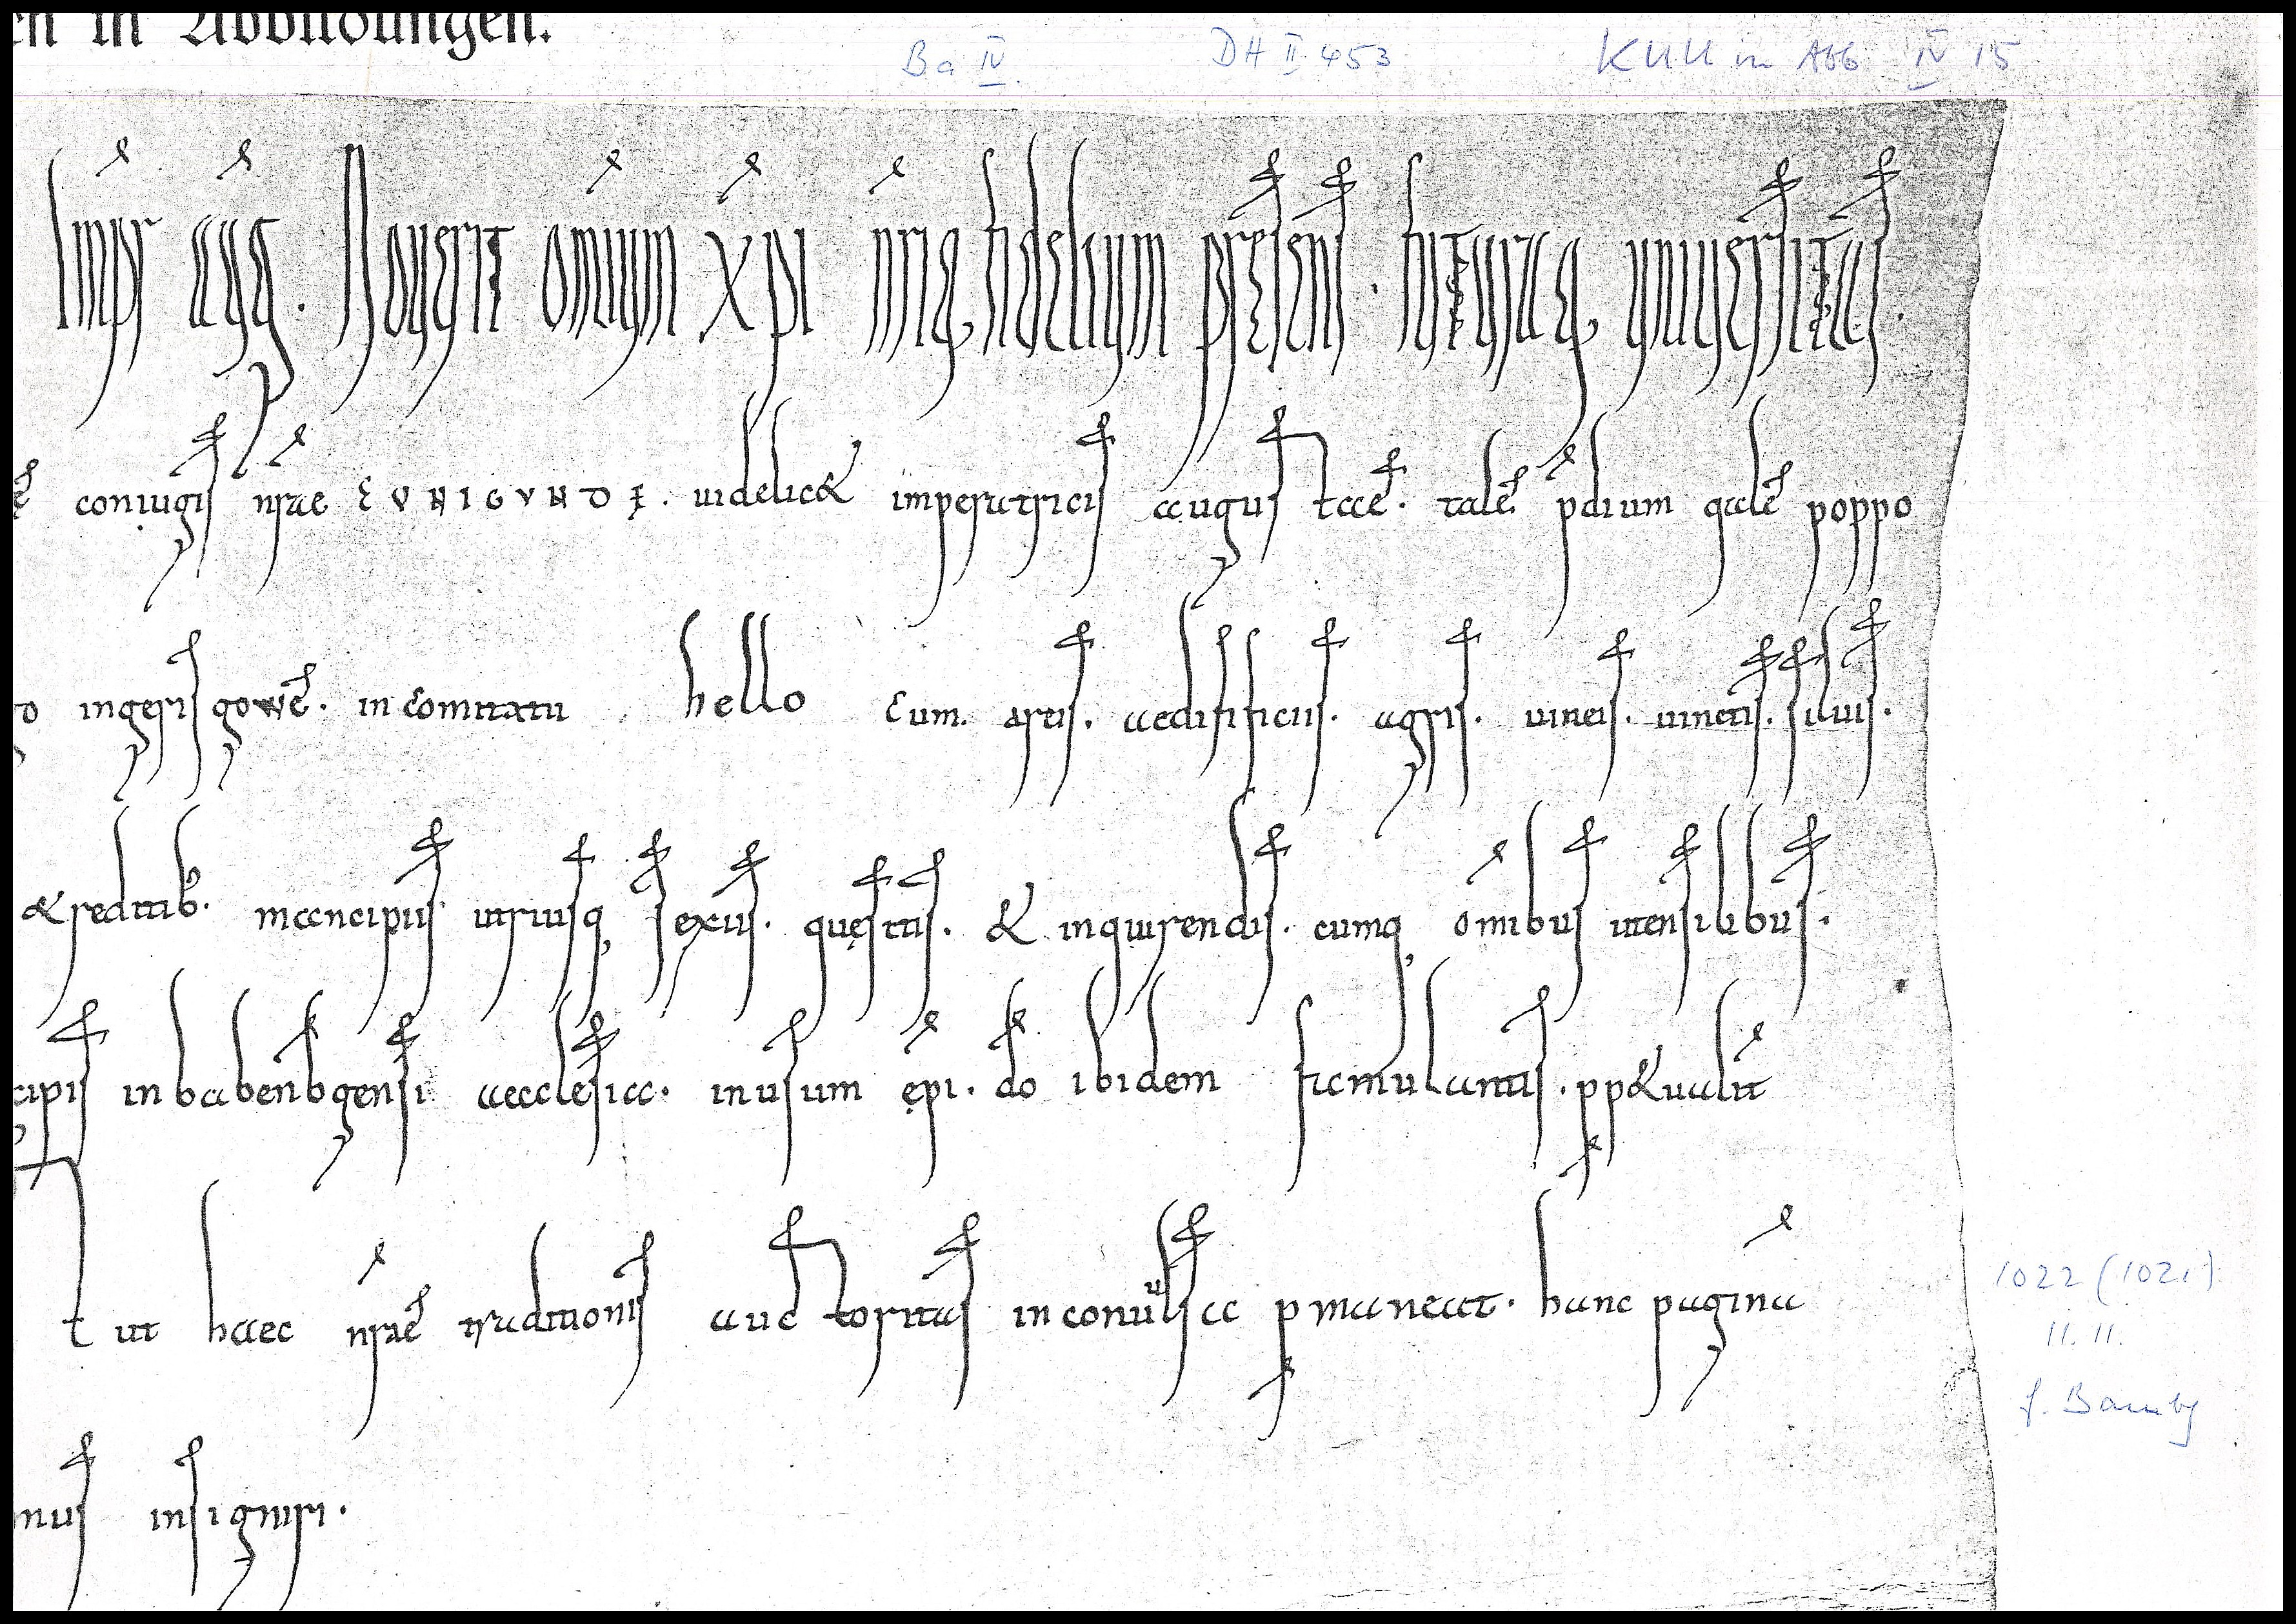 en in Abbildungen.
Ba IV. DH II 453 KUU in Abb IV 15
Impr aug. Noverit omium xpi nriq, fidelium presens. futuraq, uniuersitas.
ę coniugis nrae CVNIGVNDĘ. uidelic& imperatricis augustae. talē pdium qualē poppo
o ingerisgowe. in comitatu hello cum. areis. aedificiis. agris. uineis. uinetis. siluis.
& reditib. mancipiis utriusq, sexus. quęsitis. & inquirendis. cumq, omibus utensilibus.
cipis in babenbgensi aecclesia. in usum epi. do ibidem famulantis. pp&ualit
t ut haec nrae traditionis auctoritas inconuulsa pmaneat. hanc pagina
mus insigniri.
1022 (1021)
11. 11.
f. Bambg